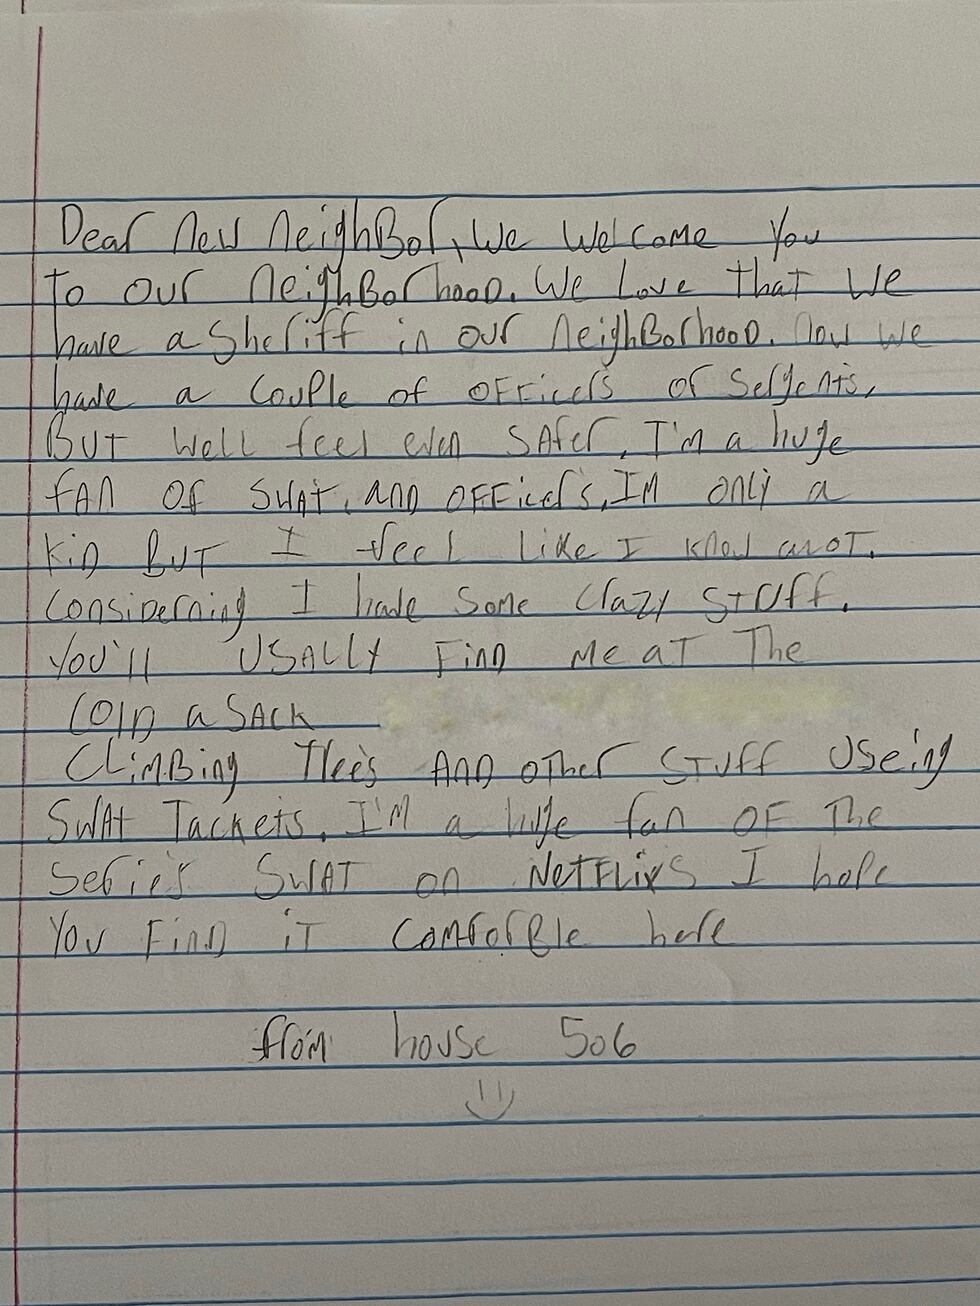 Dear new neighBor, We Welcome You
To our neighBorhood. We Love that We
have a Sheriff in our neighBorhood. now We
have a couple of officers or sergents,
BuT well feel even Safer, I'm a huge
fan of SWAT, and officers, Im only a
KiD BuT I feel like I know alot.
Considerning I have some crazy stuff.
You'll USALLY FinD Me aT The
COlD a SACK
CLiMBing Trees AnD oTher STuff Useing
SWAt Tackets. I'M a huge fan OF The
series SWAT on NeTFLixs I hope
You FinD iT comforBle here
from house 506